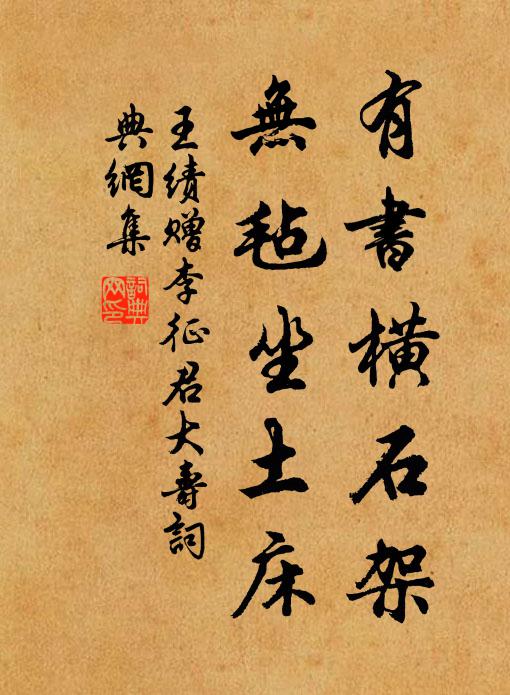 有書橫石架
無毡坐土床
王績贈李征君大壽詞
典網集
詞典
网印